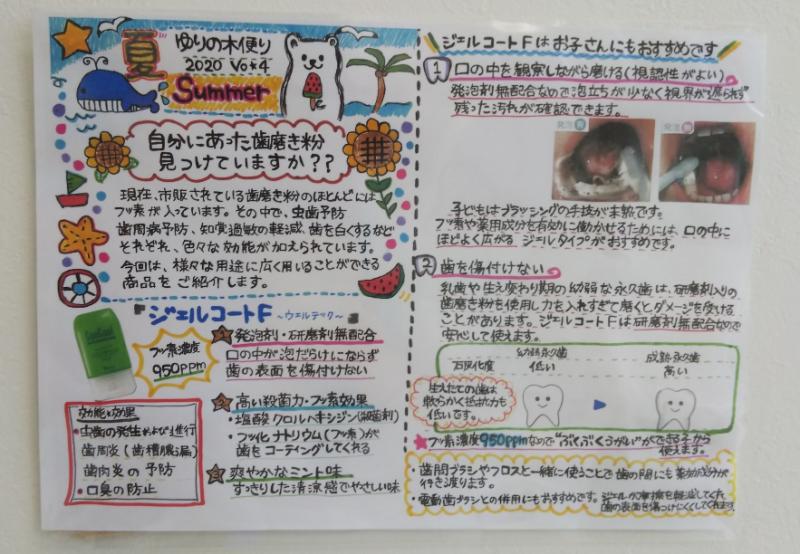 夏
ゆりの木便り
2020 Vo★4
Summer
自分にあった歯磨き粉
見つけていますか??
現在、市販されている歯磨き粉のほとんどには
フッ素が入っています。その中で、虫歯予防
歯周病予防、知覚過敏の軽減、歯を白くするなど
それぞれ、色々な効能が加えられています。
今回は、様々な用途に広く用いることができる
商品をご紹介します。
ジェルコートF ~ウエルテック~
フッ素濃度
950ppm
発泡剤・研磨剤無配合
口の中が泡だらけにならず
歯の表面を傷付けない
高い殺菌力・フッ素効果
・塩酸クロルヘキシジン(殺菌剤)
・フッ化ナトリウム(フッ素)が
歯をコーティングしてくれる
爽やかなミント味
すっきりした清涼感でやさしい味
効能・効果
・虫歯の発生および進行
歯周炎(歯槽膿漏)
歯肉炎の予防
・口臭の防止
ジェルコートFはお子さんにもおすすめです
1 口の中を観察しながら磨ける(視認性がよい)
発泡剤無配合なので泡立ちが少なく視界が遮られず
残った汚れが確認できます。
発泡 有
発泡 無
子どもはブラッシングの手技が未熟です。
フッ素や薬用成分を有効に働かせるためには、口の中に
ほどよく広がるジェルタイプがおすすめです。
2 歯を傷付けない
乳歯や生え変わり期の幼弱な永久歯は、研磨剤入りの
歯磨き粉を使用し力を入れすぎて磨くとダメージを受ける
ことがあります。ジェルコートFは研磨剤無配合なので
安心して使えます。
幼弱永久歯 成熟永久歯
石灰化度 低い 高い
生えたての歯は
軟らかく抵抗力も
低いです。
★フッ素濃度950ppmなので"ぶくぶくうがい"ができる子から
使えます。
・歯間ブラシやフロスと一緒に使うことで歯の間にも薬効成分が
行き渡ります。
・電動歯ブラシとの併用にもおすすめです。ジェルが摩擦を軽減してくれ
歯の表面を傷つけにくくしてくれます。